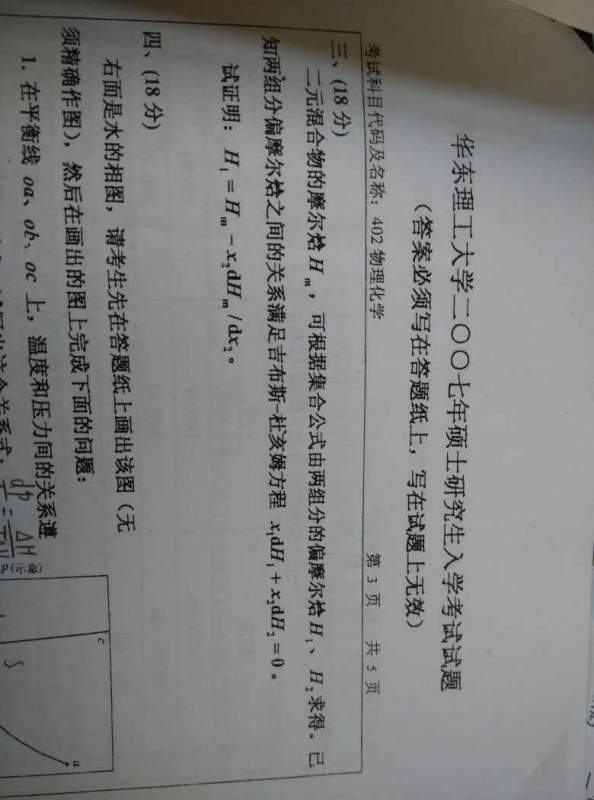 华东理工大学二〇〇七年硕士研究生入学考试试题
（答案必须写在答题纸上，写在试题上无效）
考试科目代码及名称：402 物理化学 第 3 页 共 5 页
三、(18 分)
二元混合物的摩尔焓 Hₘ，可根据集合公式由两组分的偏摩尔焓 H₁、H₂ 求得。已
知两组分偏摩尔焓之间的关系满足吉布斯-杜亥姆方程 x₁dH₁ + x₂dH₂ = 0。
试证明：H₁ = Hₘ − x₂dHₘ / dx₂。
四、(18 分)
右面是水的相图，请考生先在答题纸上画出该图（无
须精确作图），然后在画出的图上完成下面的问题：
1. 在平衡线 oa、ob、oc 上，温度和压力间的关系遵
dp ΔH
=
p(示意)
c
S
a